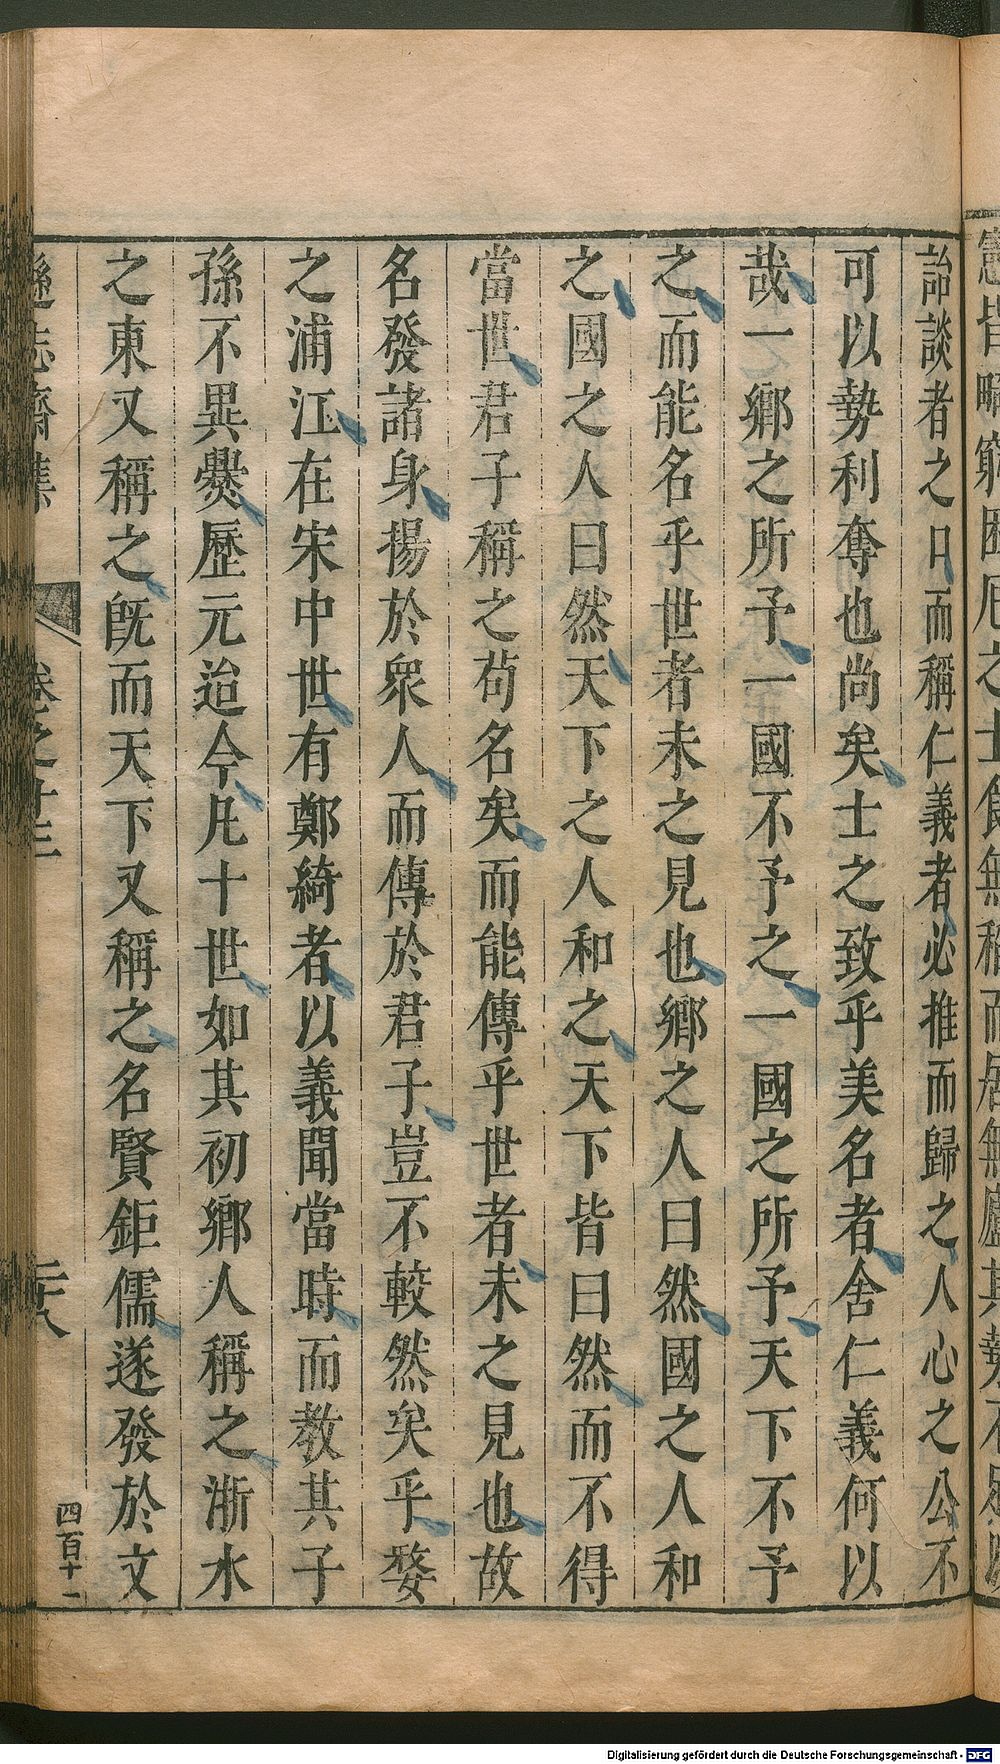 憲皆
詒談者之口而稱仁義者必推而歸之人心之公不
可以勢利奪也尚矣士之致乎美名者舍仁義何以
哉一鄉之所予一國不予之一國之所予天下不予
之而能名乎世者未之見也鄉之人曰然國之人和
之國之人曰然天下之人和之天下皆曰然而不得
當世君子稱之苟名矣而能傳乎世者未之見也故
名發諸身揚於衆人而傳於君子豈不較然矣乎婺
之浦江在宋中世有鄭綺者以義聞當時而教其子
孫不異爨歷元迨今凡十世如其初鄉人稱之浙水
之東又稱之旣而天下又稱之名賢鉅儒遂發於文
遜志齋集 卷之十三 二十八 四百十一
Digitalisierung gefördert durch die Deutsche Forschungsgemeinschaft - DFG